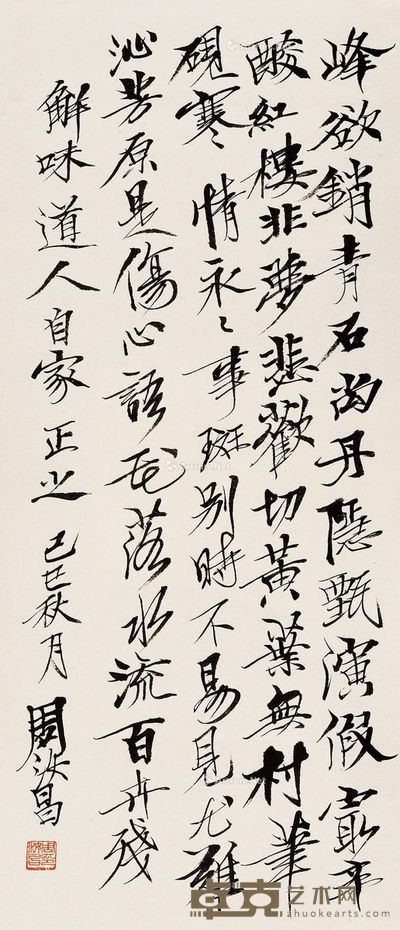 峰欲銷青石尚丹隱甄演假最辛
酸紅樓非夢悲歡切黃葉無村筆
硯寒情永〻事斑別時不易見尤難
沁芳原是傷心語花落水流百卉殘
解味道人自家正之 己巳秋月 周汝昌
卓克艺术网
zhuokearts.com